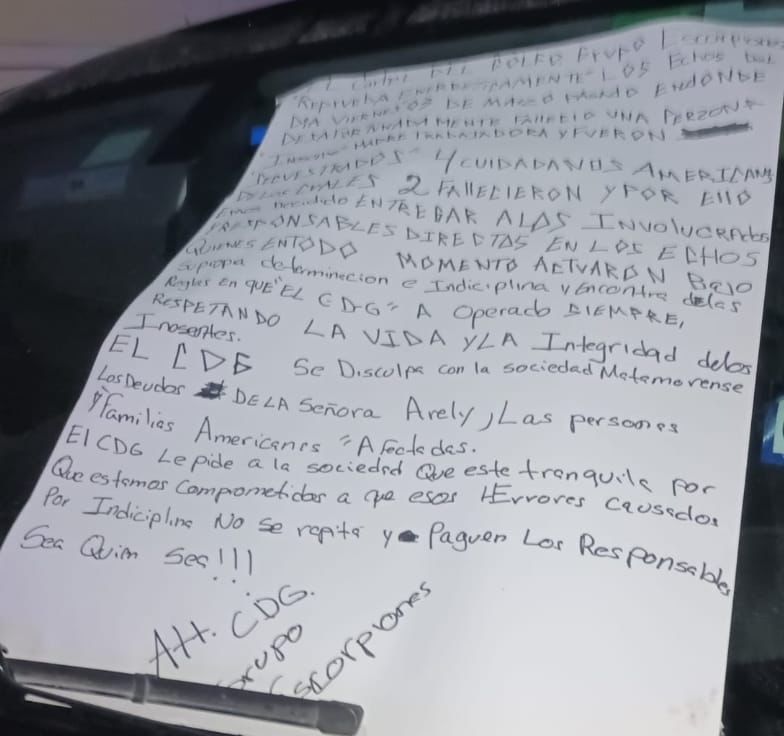 EL Cartel DEL GOLFO GRUPO Escorpiones
REPRUEBA ENERGETICAMENTE LOS Echos DEL
DIA VIERNES 03 DE MARZO PASADO ENDONDE
DESAFORANADAMENTE FALLECIO UNA PERZONA
INOSENTE MADRE TRABAJADORA Y FUERON
SECUESTRADOS 4 CUIDADANOS AMERICANOS
DE LOS CUALES 2 FALLECIERON Y POR ELLO
Emos decidido ENTREGAR ALOS INVolucrados
RESPONSABLES DIRECTOS EN LOS ECHOS
QUIENES ENTODO MOMENTO ACTUARON BAJO
su propia determinacion e Indiciplina y encontra delas
Reglas En QUE "EL CDG" A Operado SIEMPRE,
RESPETANDO LA VIDA Y LA Integridad delos
Inosentes.
EL CDG Se Disculpa con la sociedad Matamorense
Los Deudos DE LA Señora Arely, Las personas
y Familias Americanas "Afectadas.
El CDG Le pide a la sociedad Que este tranquila por
Que estamos Comprometidos a que esos HErrores causados
Por Indiciplina No se repita y Paguen Los Responsables
Sea Quim Sea!!!
Att. CDG.
Grupo
Escorpiones